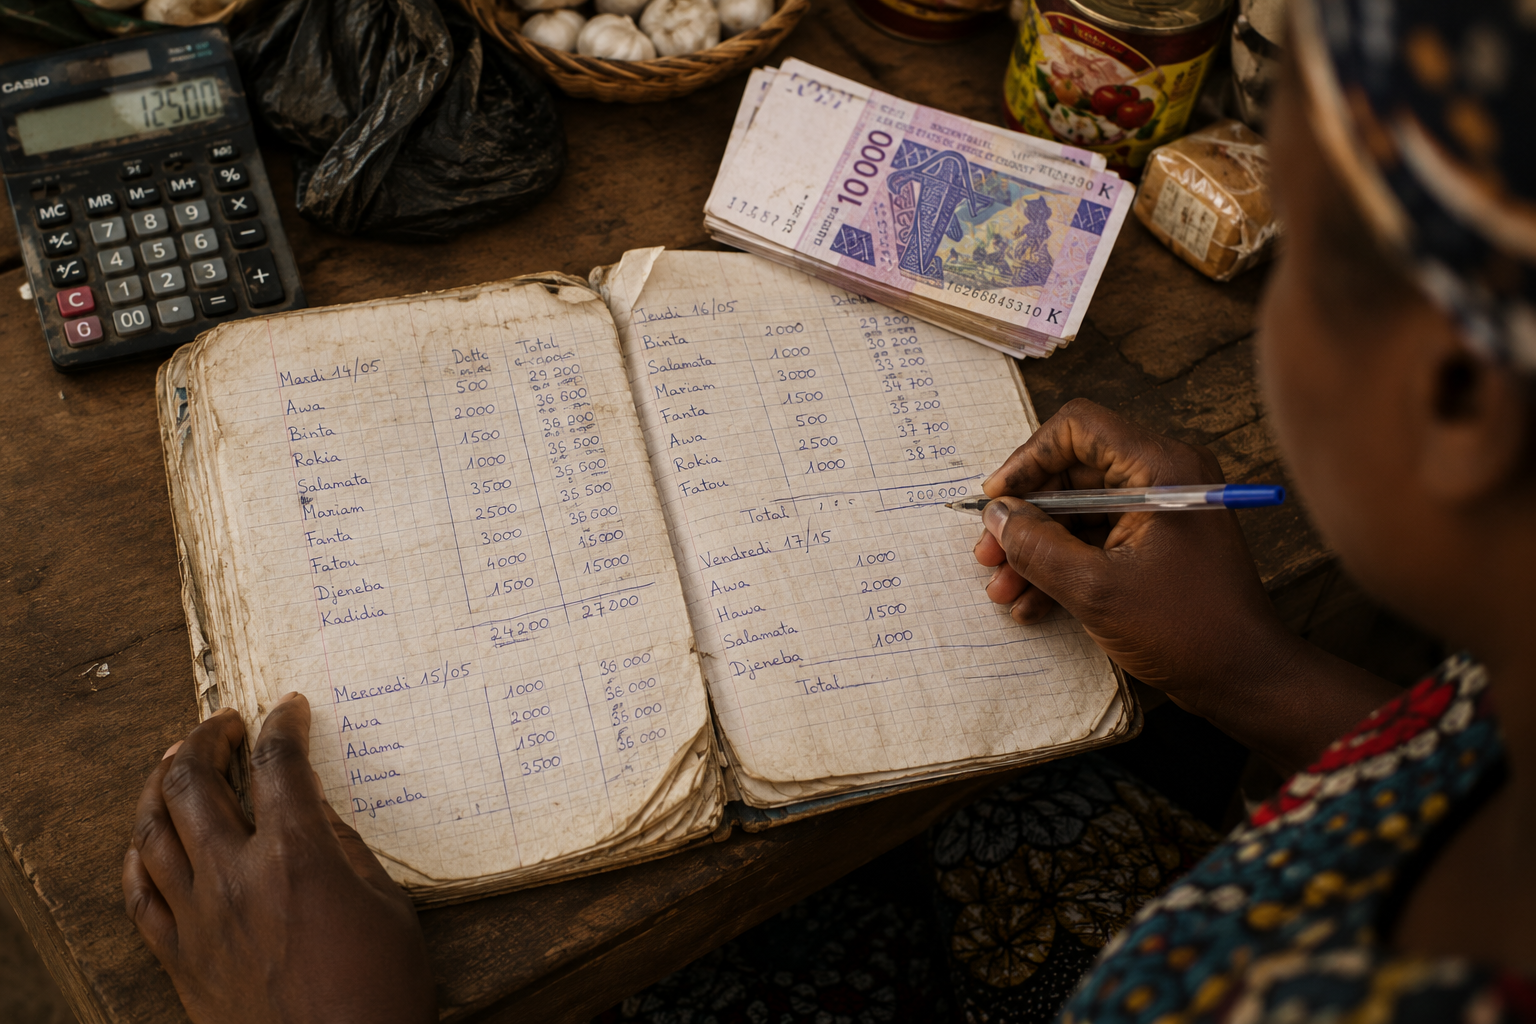 CASIO
12500
MC
MR
M−
M+
%
7
8
9
×
4
5
6
−
1
2
3
+
C
G
00
·
=
10000
K
16266845310 K
Mardi 14/05 Dette Total
Awa 500 29 200
Binta 2000 36 600
Rokia 1500 36 200
Salamata 1000 35 500
Mariam 3500 35 600
Fanta 2500 35 500
Fatou 3000 36 600
Djeneba 4000 15000
Kadidia 1500 15000
24200 27200
Mercredi 15/05
Awa 1000 36 000
Adama 2000 36 000
Hawa 1500 35 000
Djeneba 3500 36 000
Jeudi 16/05
Binta 2000 29 200
Salamata 1000 30 200
Mariam 3000 33 200
Fanta 1500 34 700
Awa 500 35 200
Rokia 2500 37 700
Fatou 1000 38 700
Total 200 000
Vendredi 17/15
Awa 1000
Hawa 2000
Salamata 1500
Djeneba 1000
Total